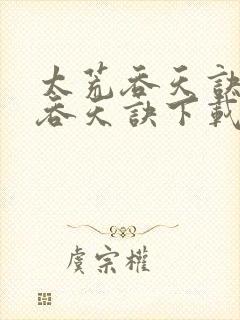 太荒吞天訣
吞天訣下載
虞宗權